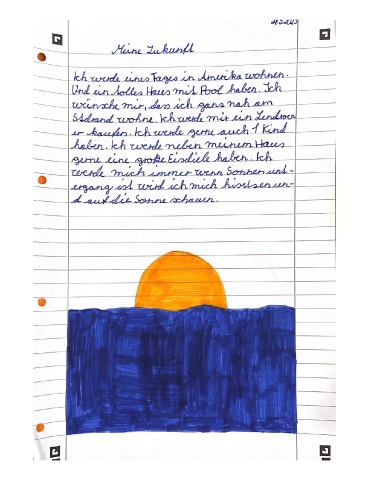 Meine Zukunft
Ich werde eines Tages in Amerika wohnen.
Und ein tolles Haus mit Pool haben. Ich
wünsche mir, das ich ganz nah am
Stdrand wohne. Ich werde mir ein Landrov
er kaufen. Ich werde gerne auch 1 Kind
haben. Ich werde neben meinem Haus
gerne eine große Eisdiele haben. Ich
werde mich immer wenn Sonnen unt-
ergang ist wird ich mich hisetsen un-
d auf die Sonne schauen.